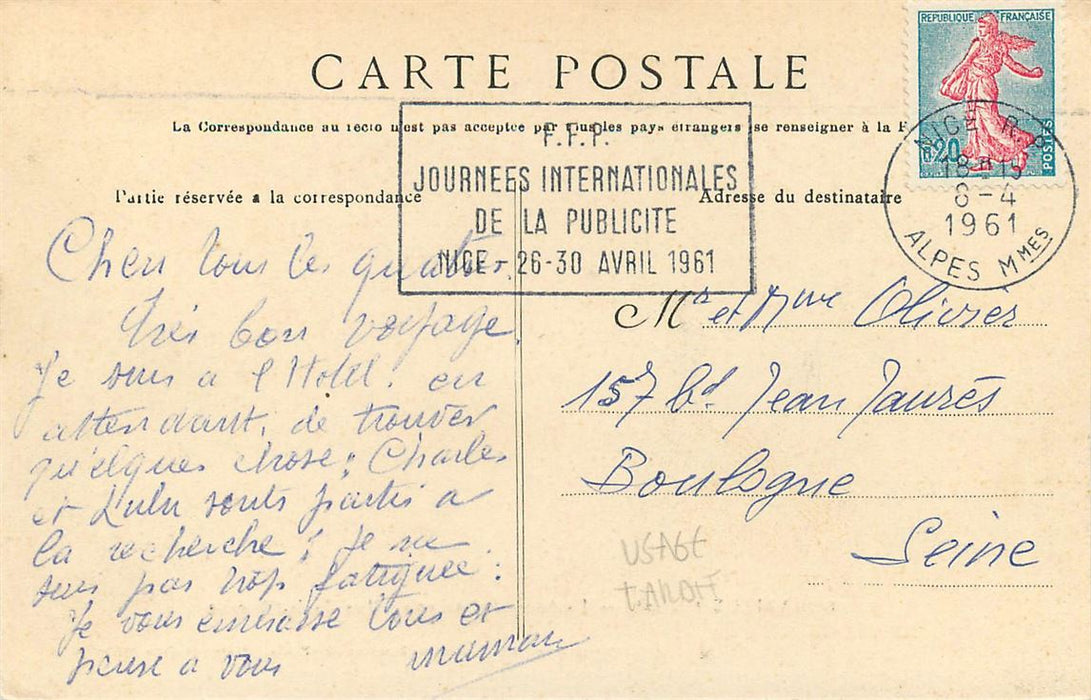 CARTE POSTALE
REPUBLIQUE FRANÇAISE
0,20
POSTES
La Correspondance au recto n'est pas acceptée par tous les pays étrangers (se renseigner à la P
F.F.P.
JOURNEES INTERNATIONALES
DE LA PUBLICITE
NICE - 26-30 AVRIL 1961
NICE R.P.
18H15
8-4
1961
ALPES MMES
Partie réservée a la correspondance
Adresse du destinataire
Chers tous les quatres.
Très bon voyage.
Je suis a l'Hotel. en
attendant, de trouver
qu'elques chose; Charles
et Lulu sonts partis a
la recherche; je ne
suis pas trop fatiguée:
Je vous embrasse tous et
pense a vous
maman
Mr et Mme Olivier
157 bd. Jean Jaurès
Boulogne
Seine
USAGE
TARDIF